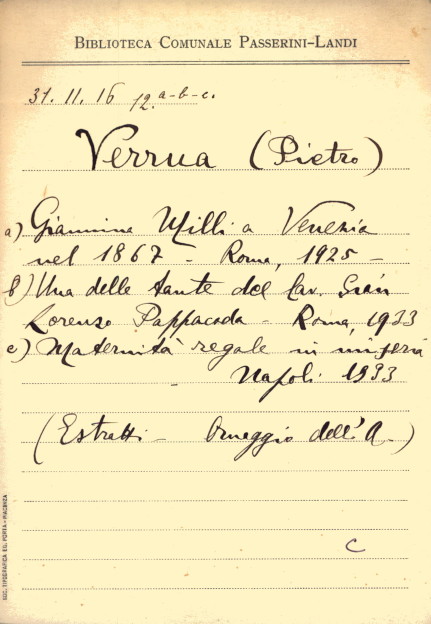 BIBLIOTECA COMUNALE PASSERINI-LANDI
31. 11. 16 12. a-b-c.
Verrua (Pietro)
a) Giannina Milli a Venezia
nel 1867 - Roma, 1925 -
b) Una delle tante del Cav. Gian
Lorenzo Pappacoda - Roma, 1933
c) Maternità regale in miseria
- Napoli 1933
(Estratti - Omaggio dell'A.)
C
SOC. TIPOGRAFICA ED. PORTA - PIACENZA